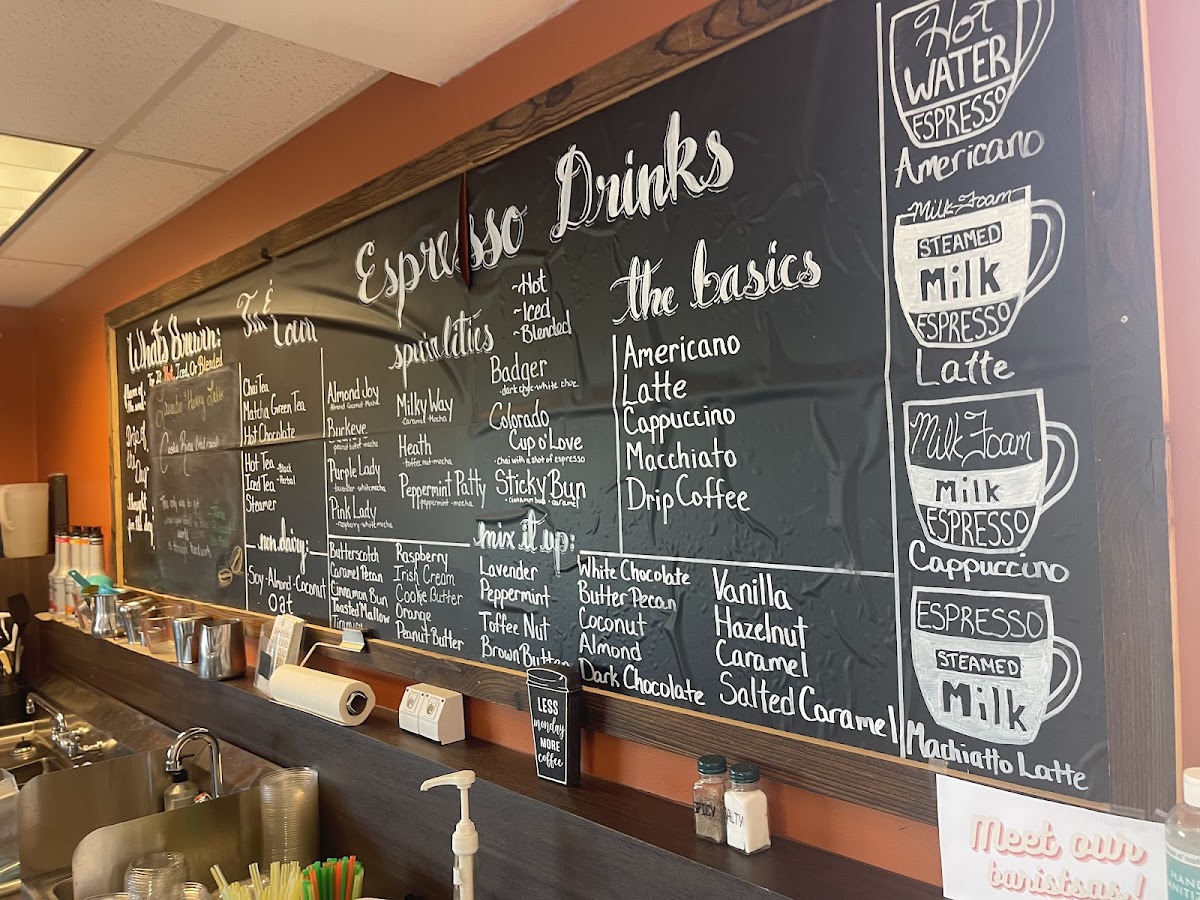 Espresso Drinks
What's Brewin:
Try It Hot, Iced, Or Blended
Flavor of
the week:
Lavender Honey Latte
Costa Rica
Tea &
Chai Tea
Matcha Green Tea
Hot Chocolate
Hot Tea -Black
-Herbal
Iced Tea
Steamer
non dairy:
Soy-Almond-Coconut
Oat
specialties
Almond Joy
Almond Coconut Mocha
Buckeye
peanut butter-mocha
Purple Lady
lavender-white mocha
Pink Lady
-raspberry-white mocha
Milky Way
-Caramel-Mocha
Heath
-toffee nut-mocha
Peppermint Patty
peppermint-mocha
~Hot
~Iced
~Blended
Badger
-dark choc-white choc
Colorado
Cup O' Love
-Chai with a shot of espresso
Sticky Bun
-cinnamon bun-caramel
the basics
Americano
Latte
Cappuccino
Macchiato
Drip Coffee
mix it up:
Butterscotch
Caramel Pecan
Cinnamon Bun
Toasted Mallow
Tiramisu
Raspberry
Irish Cream
Cookie Butter
Orange
Peanut Butter
Lavender
Peppermint
Toffee Nut
Brown Butter
White Chocolate
Butter Pecan
Coconut
Almond
Dark Chocolate
Vanilla
Hazelnut
Caramel
Salted Caramel
Hot
WATER
ESPRESSO
Americano
Milk Foam
STEAMED
Milk
ESPRESSO
Latte
Milk Foam
Milk
ESPRESSO
Cappuccino
ESPRESSO
STEAMED
Milk
Machiatto Latte
LESS
monday
MORE
coffee
SPICY
SALTY
Meet our
baristsas!
HAND
SANITIZ